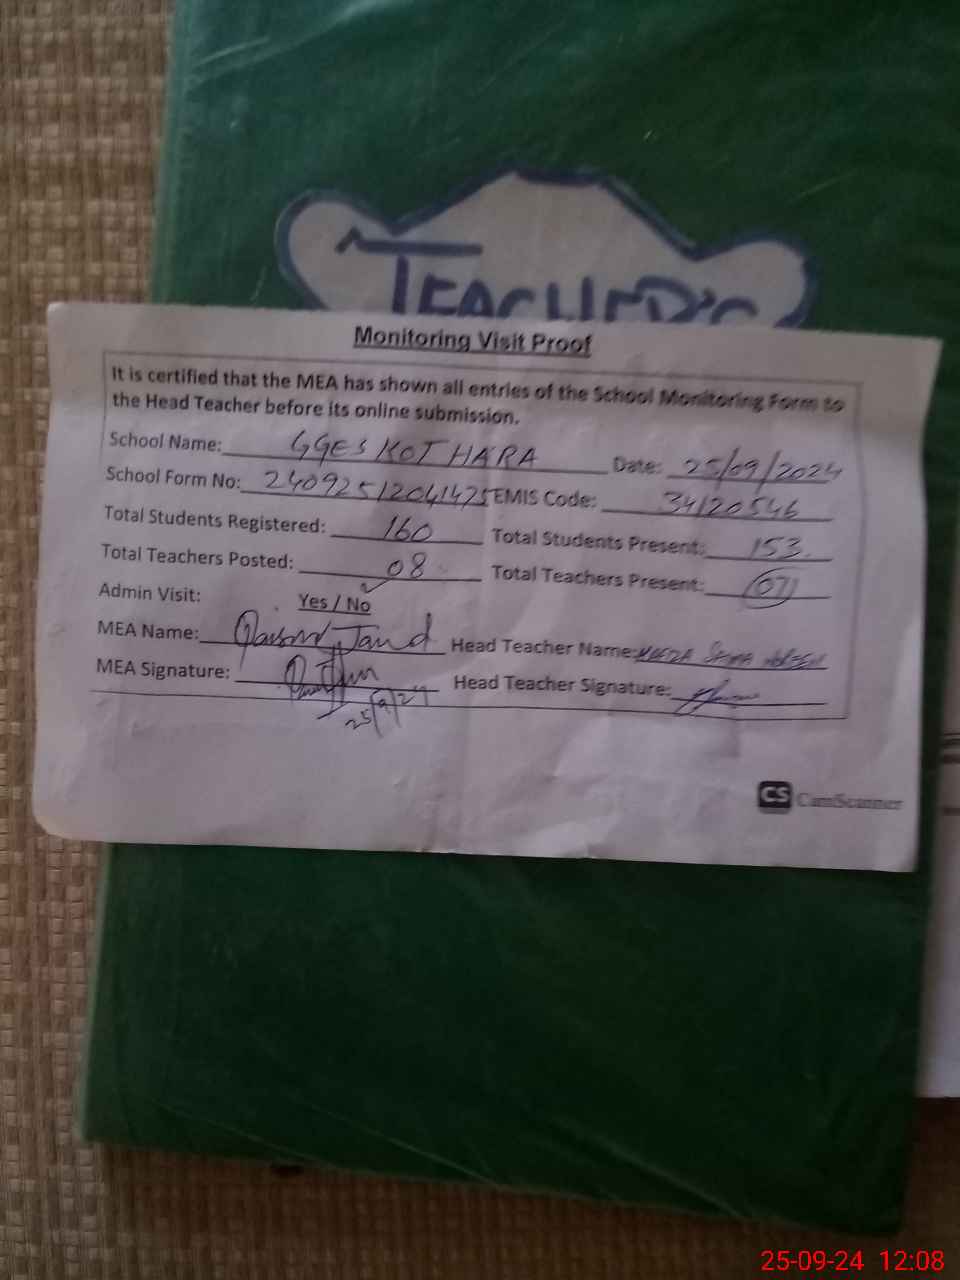 TEACHER'S
Monitoring Visit Proof
It is certified that the MEA has shown all entries of the School Monitoring Form to
the Head Teacher before its online submission.
School Name: GGES KOT HARA Date: 25/09/2024
School Form No: 24092512041475 EMIS Code: 34120546
Total Students Registered: 160 Total Students Present: 153
Total Teachers Posted: 08 Total Teachers Present: 07
Admin Visit: Yes / No
MEA Name: Head Teacher Name:
MEA Signature: Head Teacher Signature:
25/9/24
CS CamScanner
25-09-24 12:08